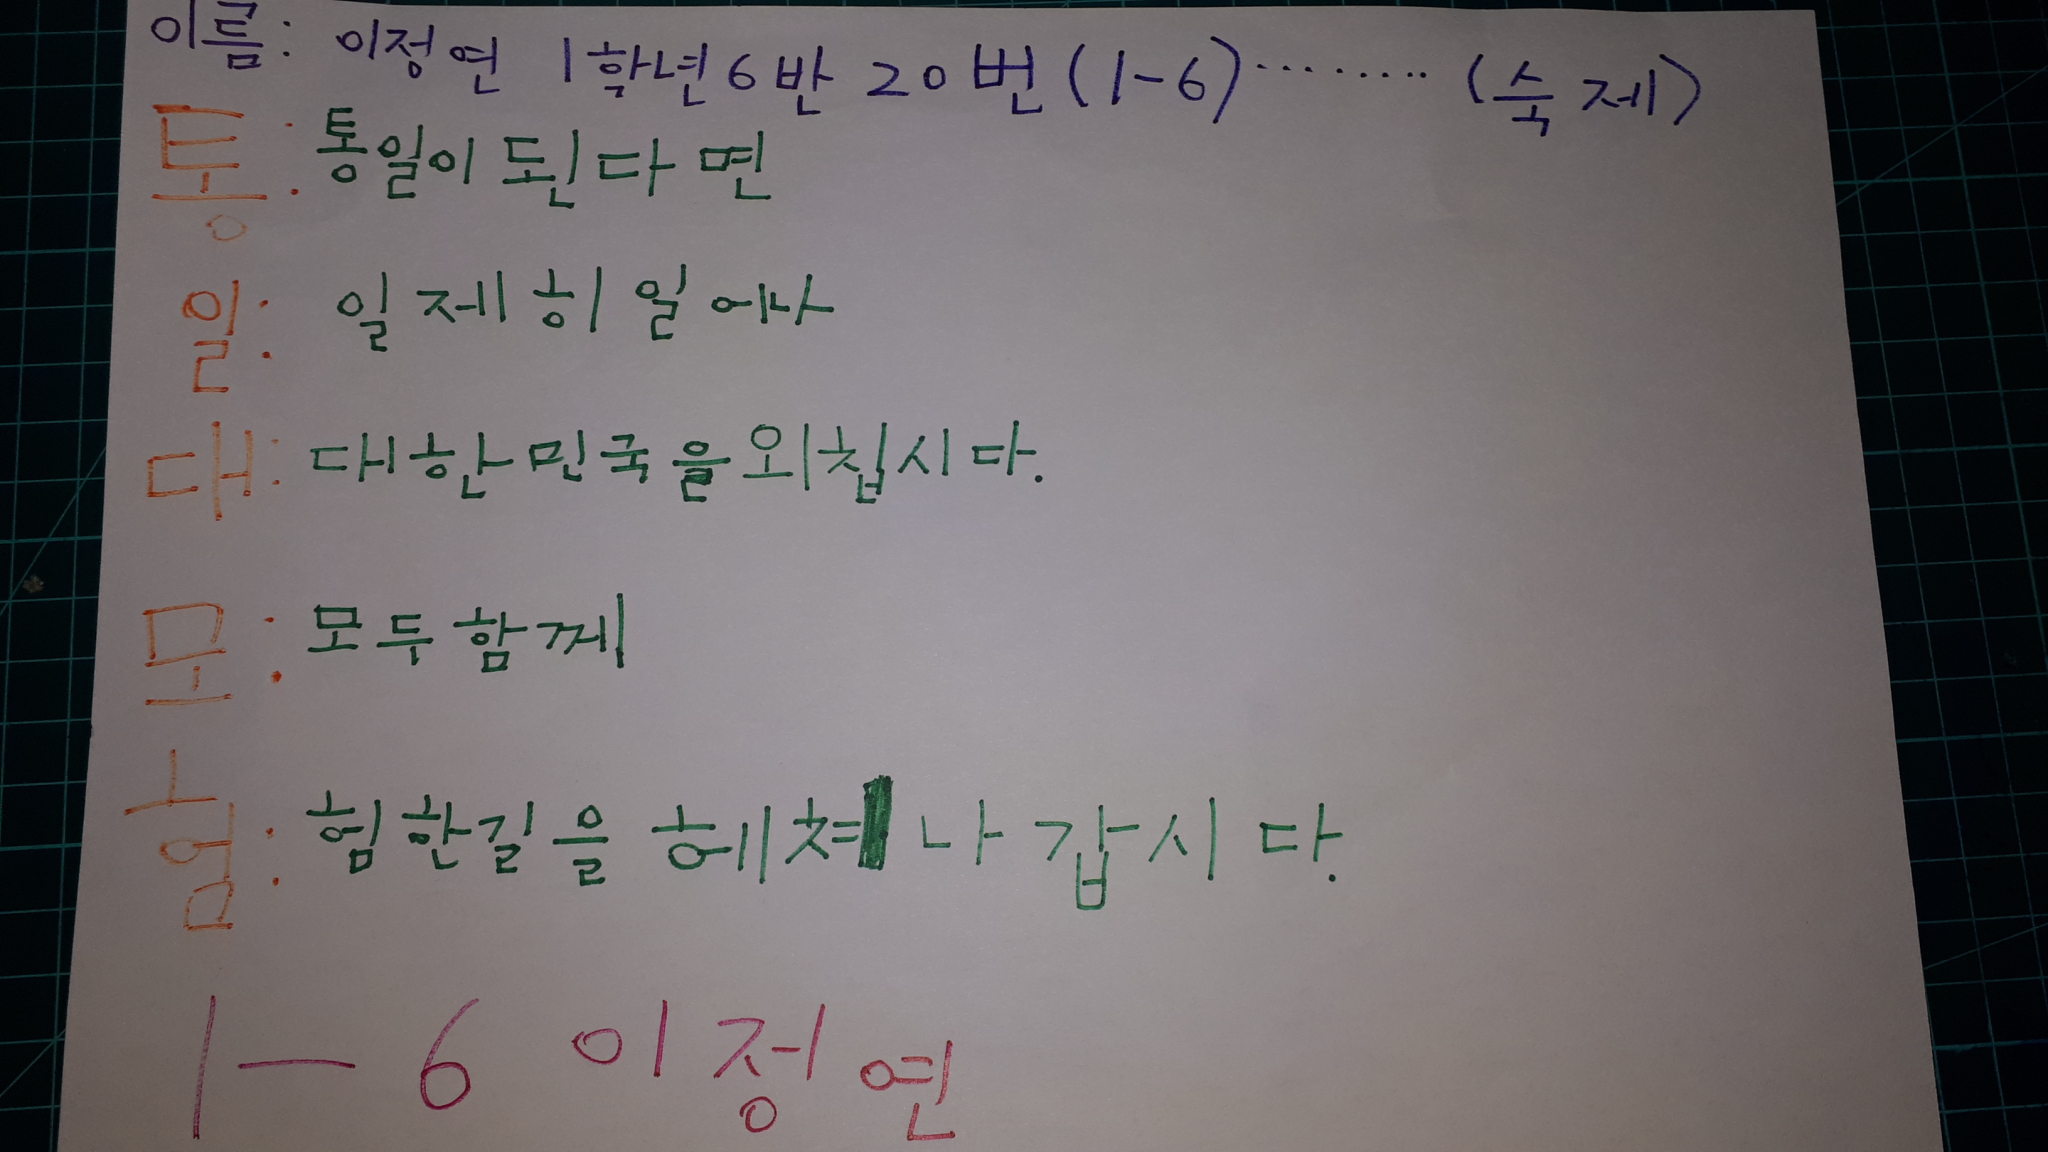 이름: 이정연 1학년 6반 20번 (1-6)........ (숙제)
통: 통일이 된다면
일: 일제히 일어나
대: 대한민국을 외칩시다.
모: 모두 함께
험: 험한길을 헤쳐 나갑시다.
1-6 이정연